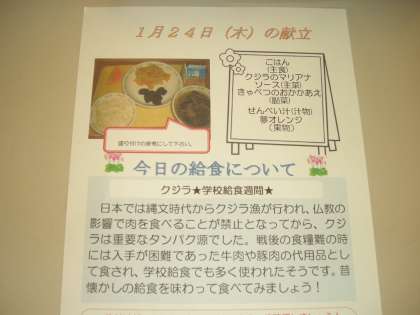 1月24日（木）の献立
ごはん
（主食）
クジラのマリアナ
ソース（主菜）
きゃべつのおかかあえ
（副菜）
せんべい汁（汁物）
夢オレンジ
（果物）
盛り付けの参考にして下さい。
今日の給食について
クジラ★学校給食週間★
日本では縄文時代からクジラ漁が行われ、仏教の
影響で肉を食べることが禁止となってから、クジ
ラは重要なタンパク源でした。戦後の食糧難の時
には入手が困難であった牛肉や豚肉の代用品とし
て食され、学校給食でも多く使われたそうです。昔
懐かしの給食を味わって食べてみましょう！